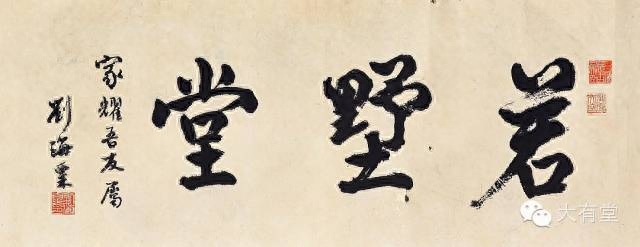 若墅堂
家耀吾友属
劉海粟
大有堂